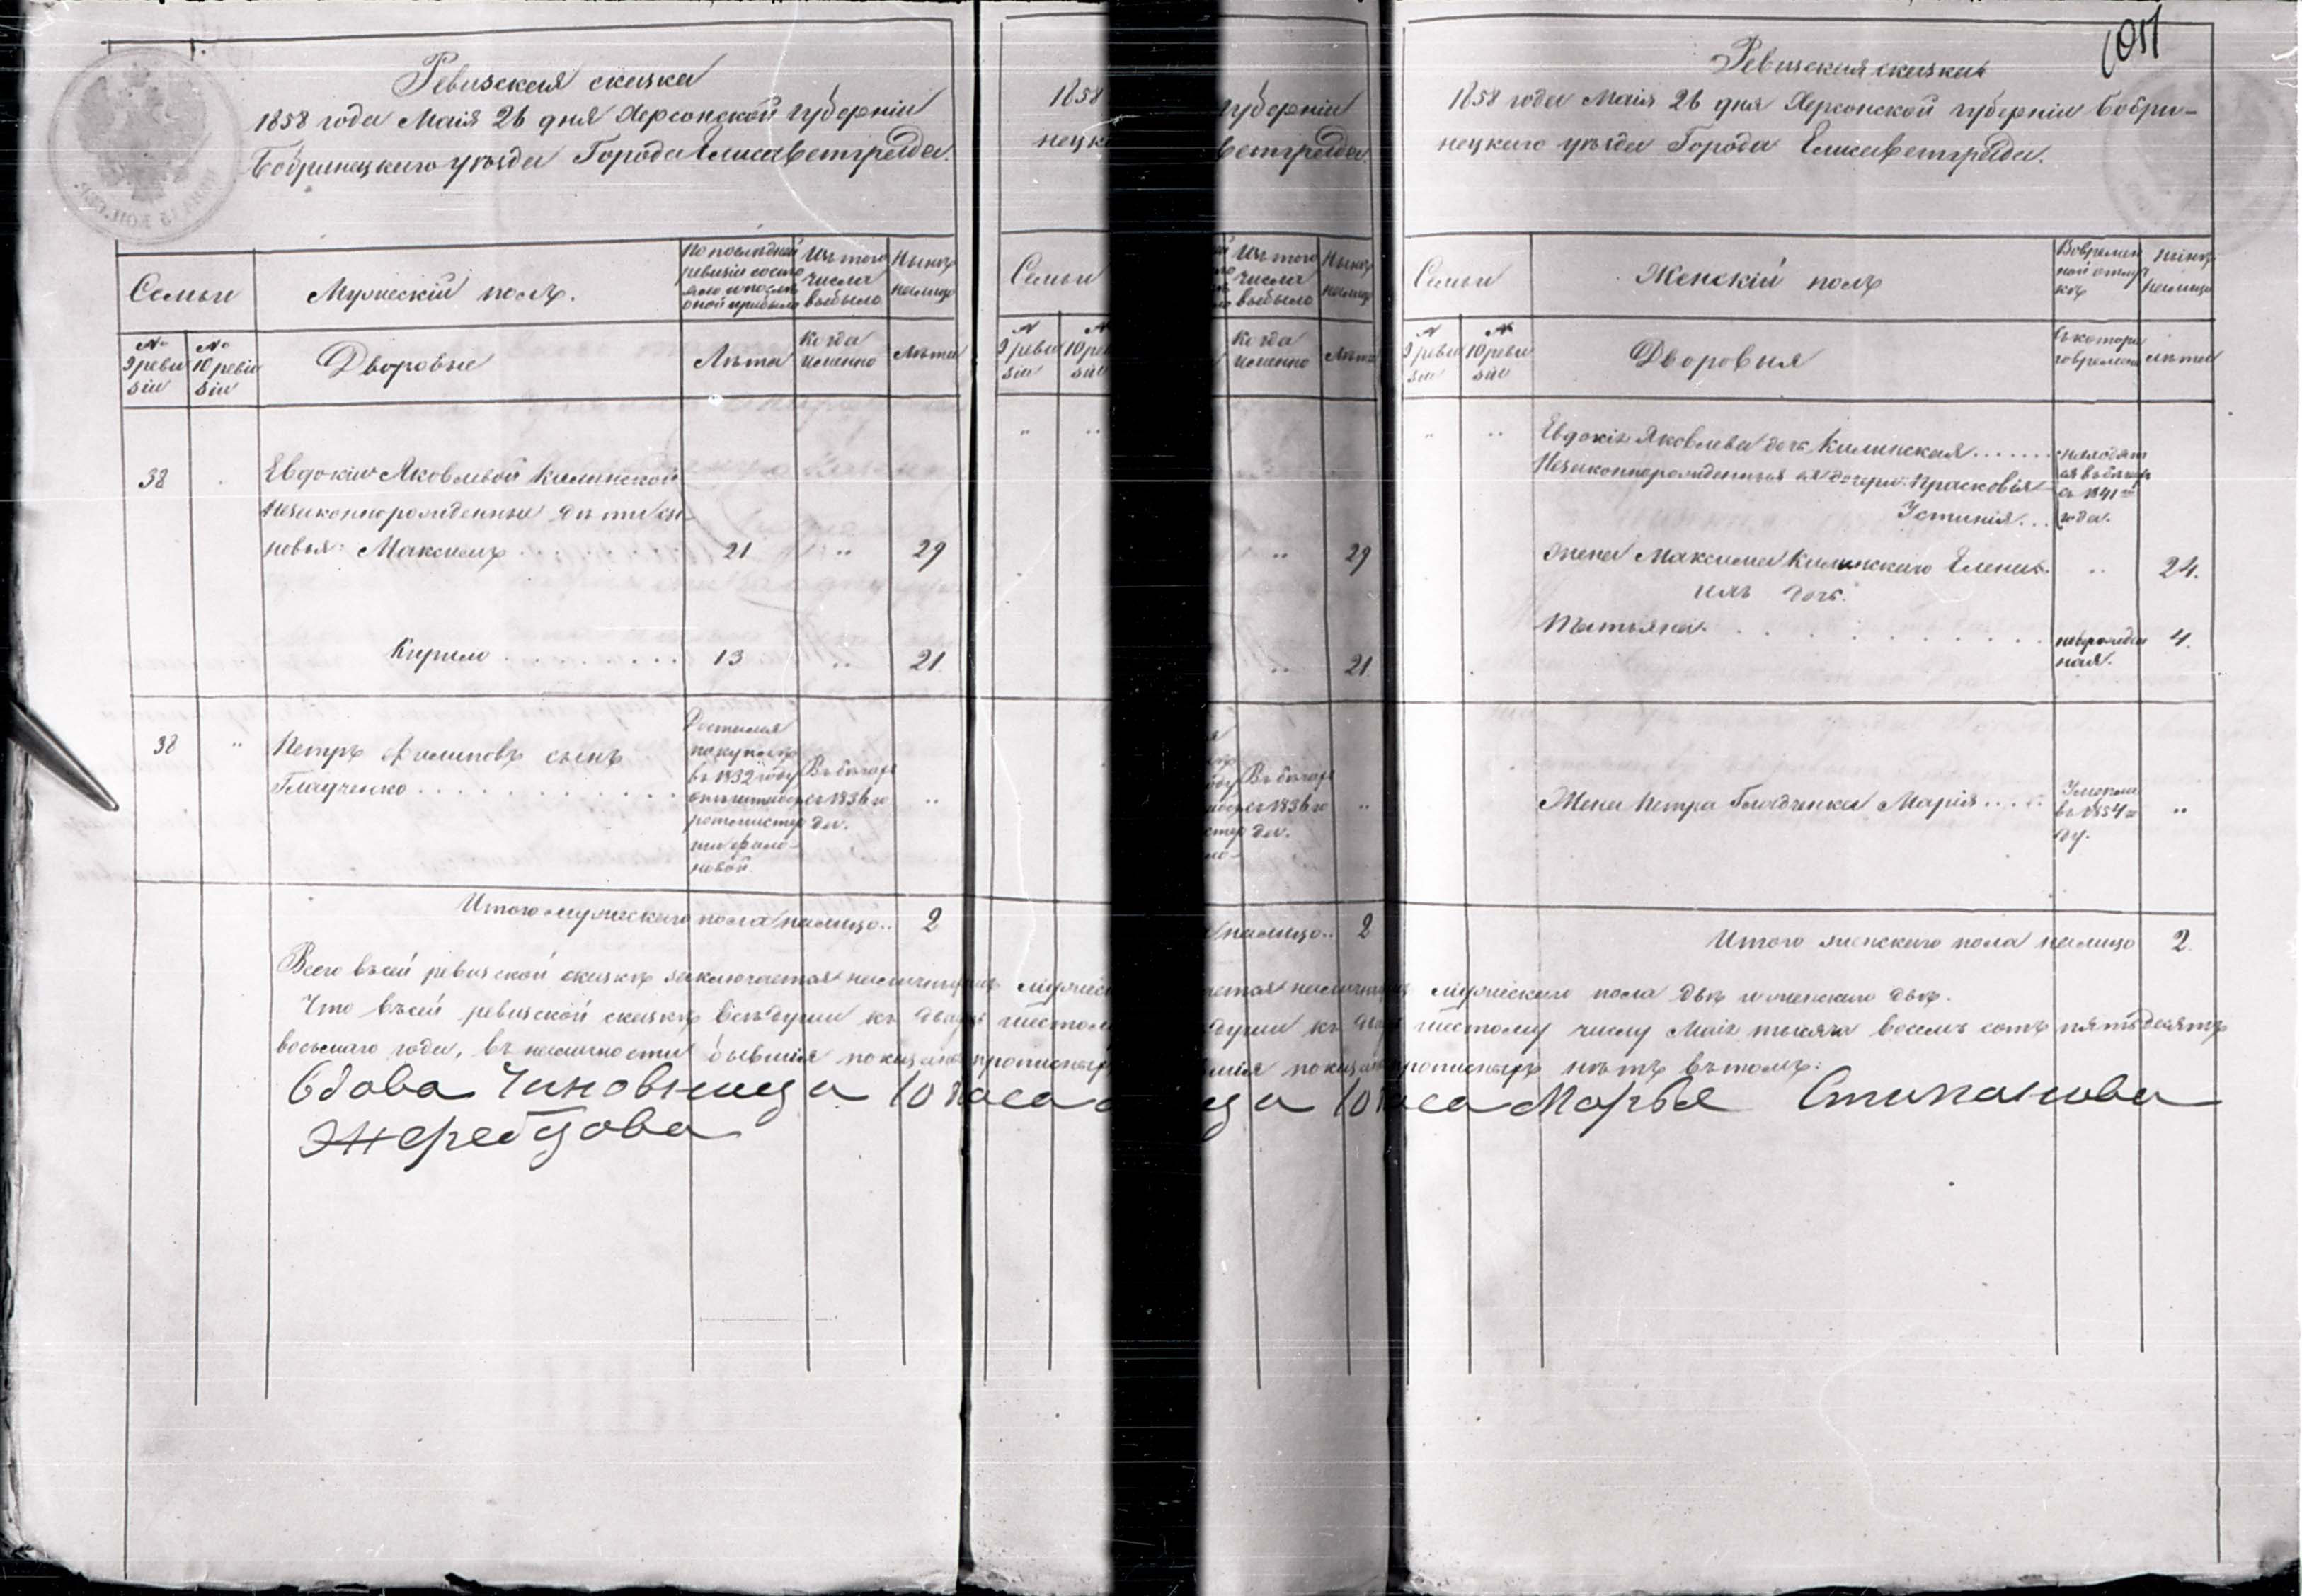 Ревизская сказка
1858 года Маія 26 дня Херсонской губерніи
Бобринецкаго уѣзда Города Елисаветграда.
Семьи
Мужескій полъ.
По последней
ревизіи состо
яло и послѣ
оной прибыло
Изъ того
числа
выбыло
Нынѣ
налицо
№
9 реви
зіи
№
10 реви
зіи
Дворовые
Лѣта
Когда
именно
Лѣта
38
Евдокіи Яковлевой Калинской
незаконнорожденные дѣти сы-
новья: Максимъ
21
29
Кирило
13
21
38
Петръ Филиповъ сынъ
Гладченко
Досталися
покупкою
въ 1832 году
ротмистер
ши Фило-
новой
Въ бегахъ
съ 1836 го
да.
Итого мужескаго пола налицо..
2
1858
губерніи
нецка
ветграда
Семьи
Изъ того
числа
выбыло
Нынѣ
налицо
№
9 реви
зіи
№
10 рев
зіи
Когда
именно
Лѣта
29
21
Въ бегахъ
съ 1836 го
да.
налицо..
2
1051
Ревизская сказка
1858 года Маія 26 дня Херсонской губерніи Бобри-
нецкаго уѣзда Города Елисаветграда.
Семьи
Женскій полъ
Вовремен
ной отлуч
кѣ
Нынѣ
налицо
№
9 реви
зіи
№
10 реви
зіи
Дворовыя
Съ котора
го времени
лѣта
Евдокія Яковлева дочь Калинская
Незаконнорожденныя ея дочери: Прасковія
Устинія
находят
ся въ бегахъ
съ 1841 го
года.
Жена Максима Калинскаго Елена
24.
ихъ дочь.
Татьяна
новорожден
ная.
4.
Жена Петра Гладченка Марія
Умерла
въ 1854 го
ду.
Итого женскаго пола налицо
2.
Всего въ сей ревизской сказкѣ заключается наличныхъ мужескаго пола двѣ и женскаго двѣ.
Что въ сей ревизской сказкѣ всѣ души къ двадцать шестому числу Маія тысяча восемь сотъ пятьдесятъ
восьмаго года, въ наличности бывшія показаны и прописныхъ нѣтъ въ томъ:
Вдова Чиновница 10 класа Марья Стипанова
Жеребцова